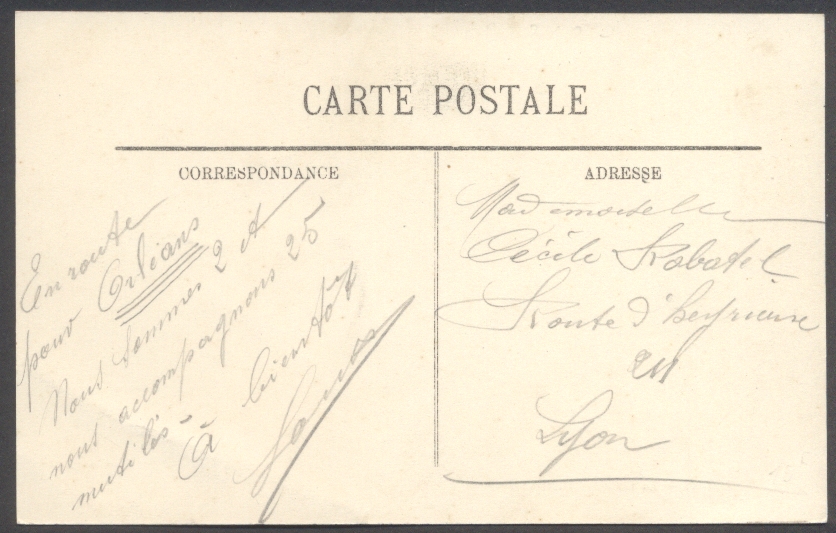 CARTE POSTALE
CORRESPONDANCE
En route
pour Orléans
Nous sommes 2 et
nous accompagnons 25
mutilés
à bientôt
ADRESSE
Mademoiselle
Cécile Rabatel
Route d'heyrieux
211
Lyon